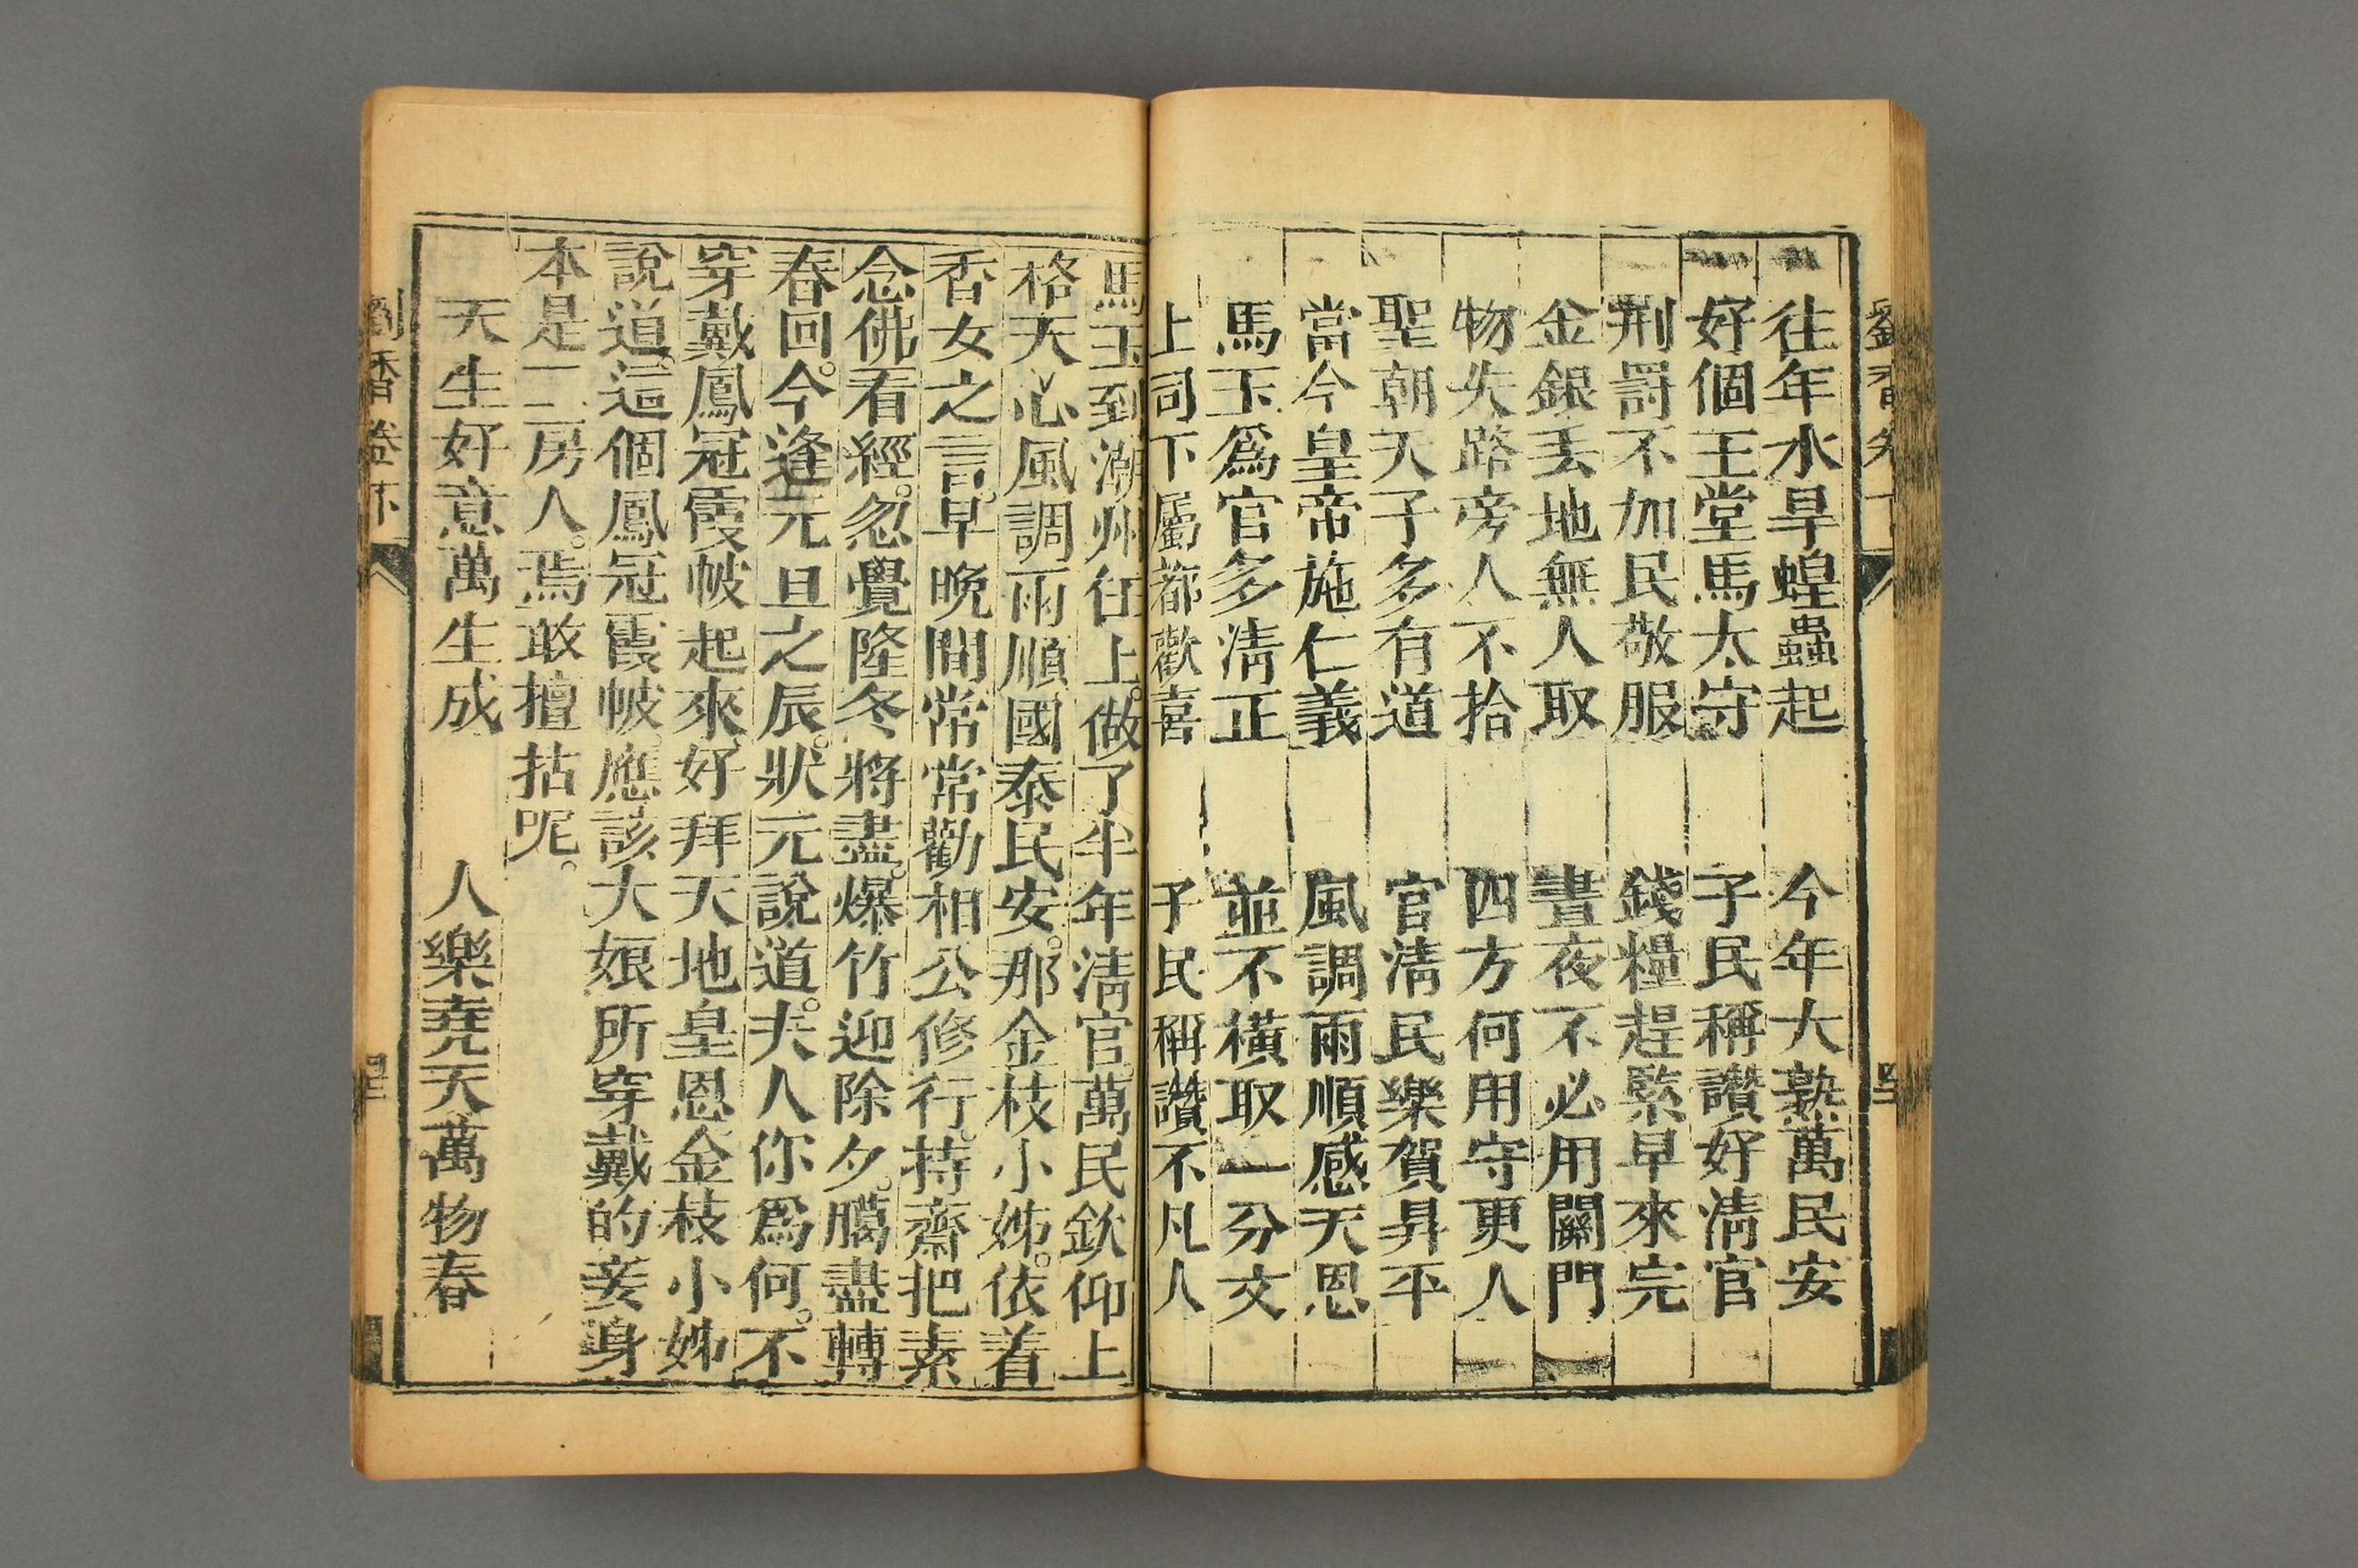 往年水旱蝗蟲起　今年大熟萬民安
好個王堂馬太守　子民稱讚好淸官
刑罰不加民敬服　錢糧趕緊早來完
金銀丟地無人取　晝夜不必用關門
物失路旁人不拾　四方何用守更人
聖朝天子多有道　官淸民樂賀昇平
當今皇帝施仁義　風調雨順感天恩
馬玉爲官多淸正　並不橫取一分文
上司下屬都歡喜　子民稱讚不凡人
馬玉到潮州任上。做了半年淸官萬民欽仰上
格天心風調雨順國泰民安。那金枝小姊。依着
香女之言。早晚間常常勸相公修行。持齋把素
念佛看經。忽覺隆冬將盡。爆竹迎除夕。臘盡轉
春回。今逢元旦之辰。狀元說道。夫人你爲何。不
穿戴鳳冠霞帔起來。好拜天地皇恩。金枝小姊
說道。這個鳳冠霞帔。應該大娘所穿戴的妾身
本是二房人。焉敢擅拈呢。
天生好意萬生成　人樂堯天萬物春
劉香卷下